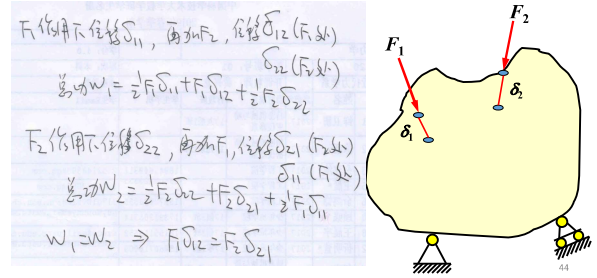 F₁作用下位移δ₁₁，再加F₂，位移δ₁₂(F₁处)
δ₂₂(F₂处)
总功W₁=½F₁δ₁₁+F₁δ₁₂+½F₂δ₂₂
F₂作用下位移δ₂₂，再加F₁，位移δ₂₁(F₂处)
δ₁₁(F₁处)
总功W₂=½F₂δ₂₂+F₂δ₂₁+½F₁δ₁₁
W₁=W₂ ⇒ F₁δ₁₂=F₂δ₂₁
F₂
F₁
δ₂
δ₁
44